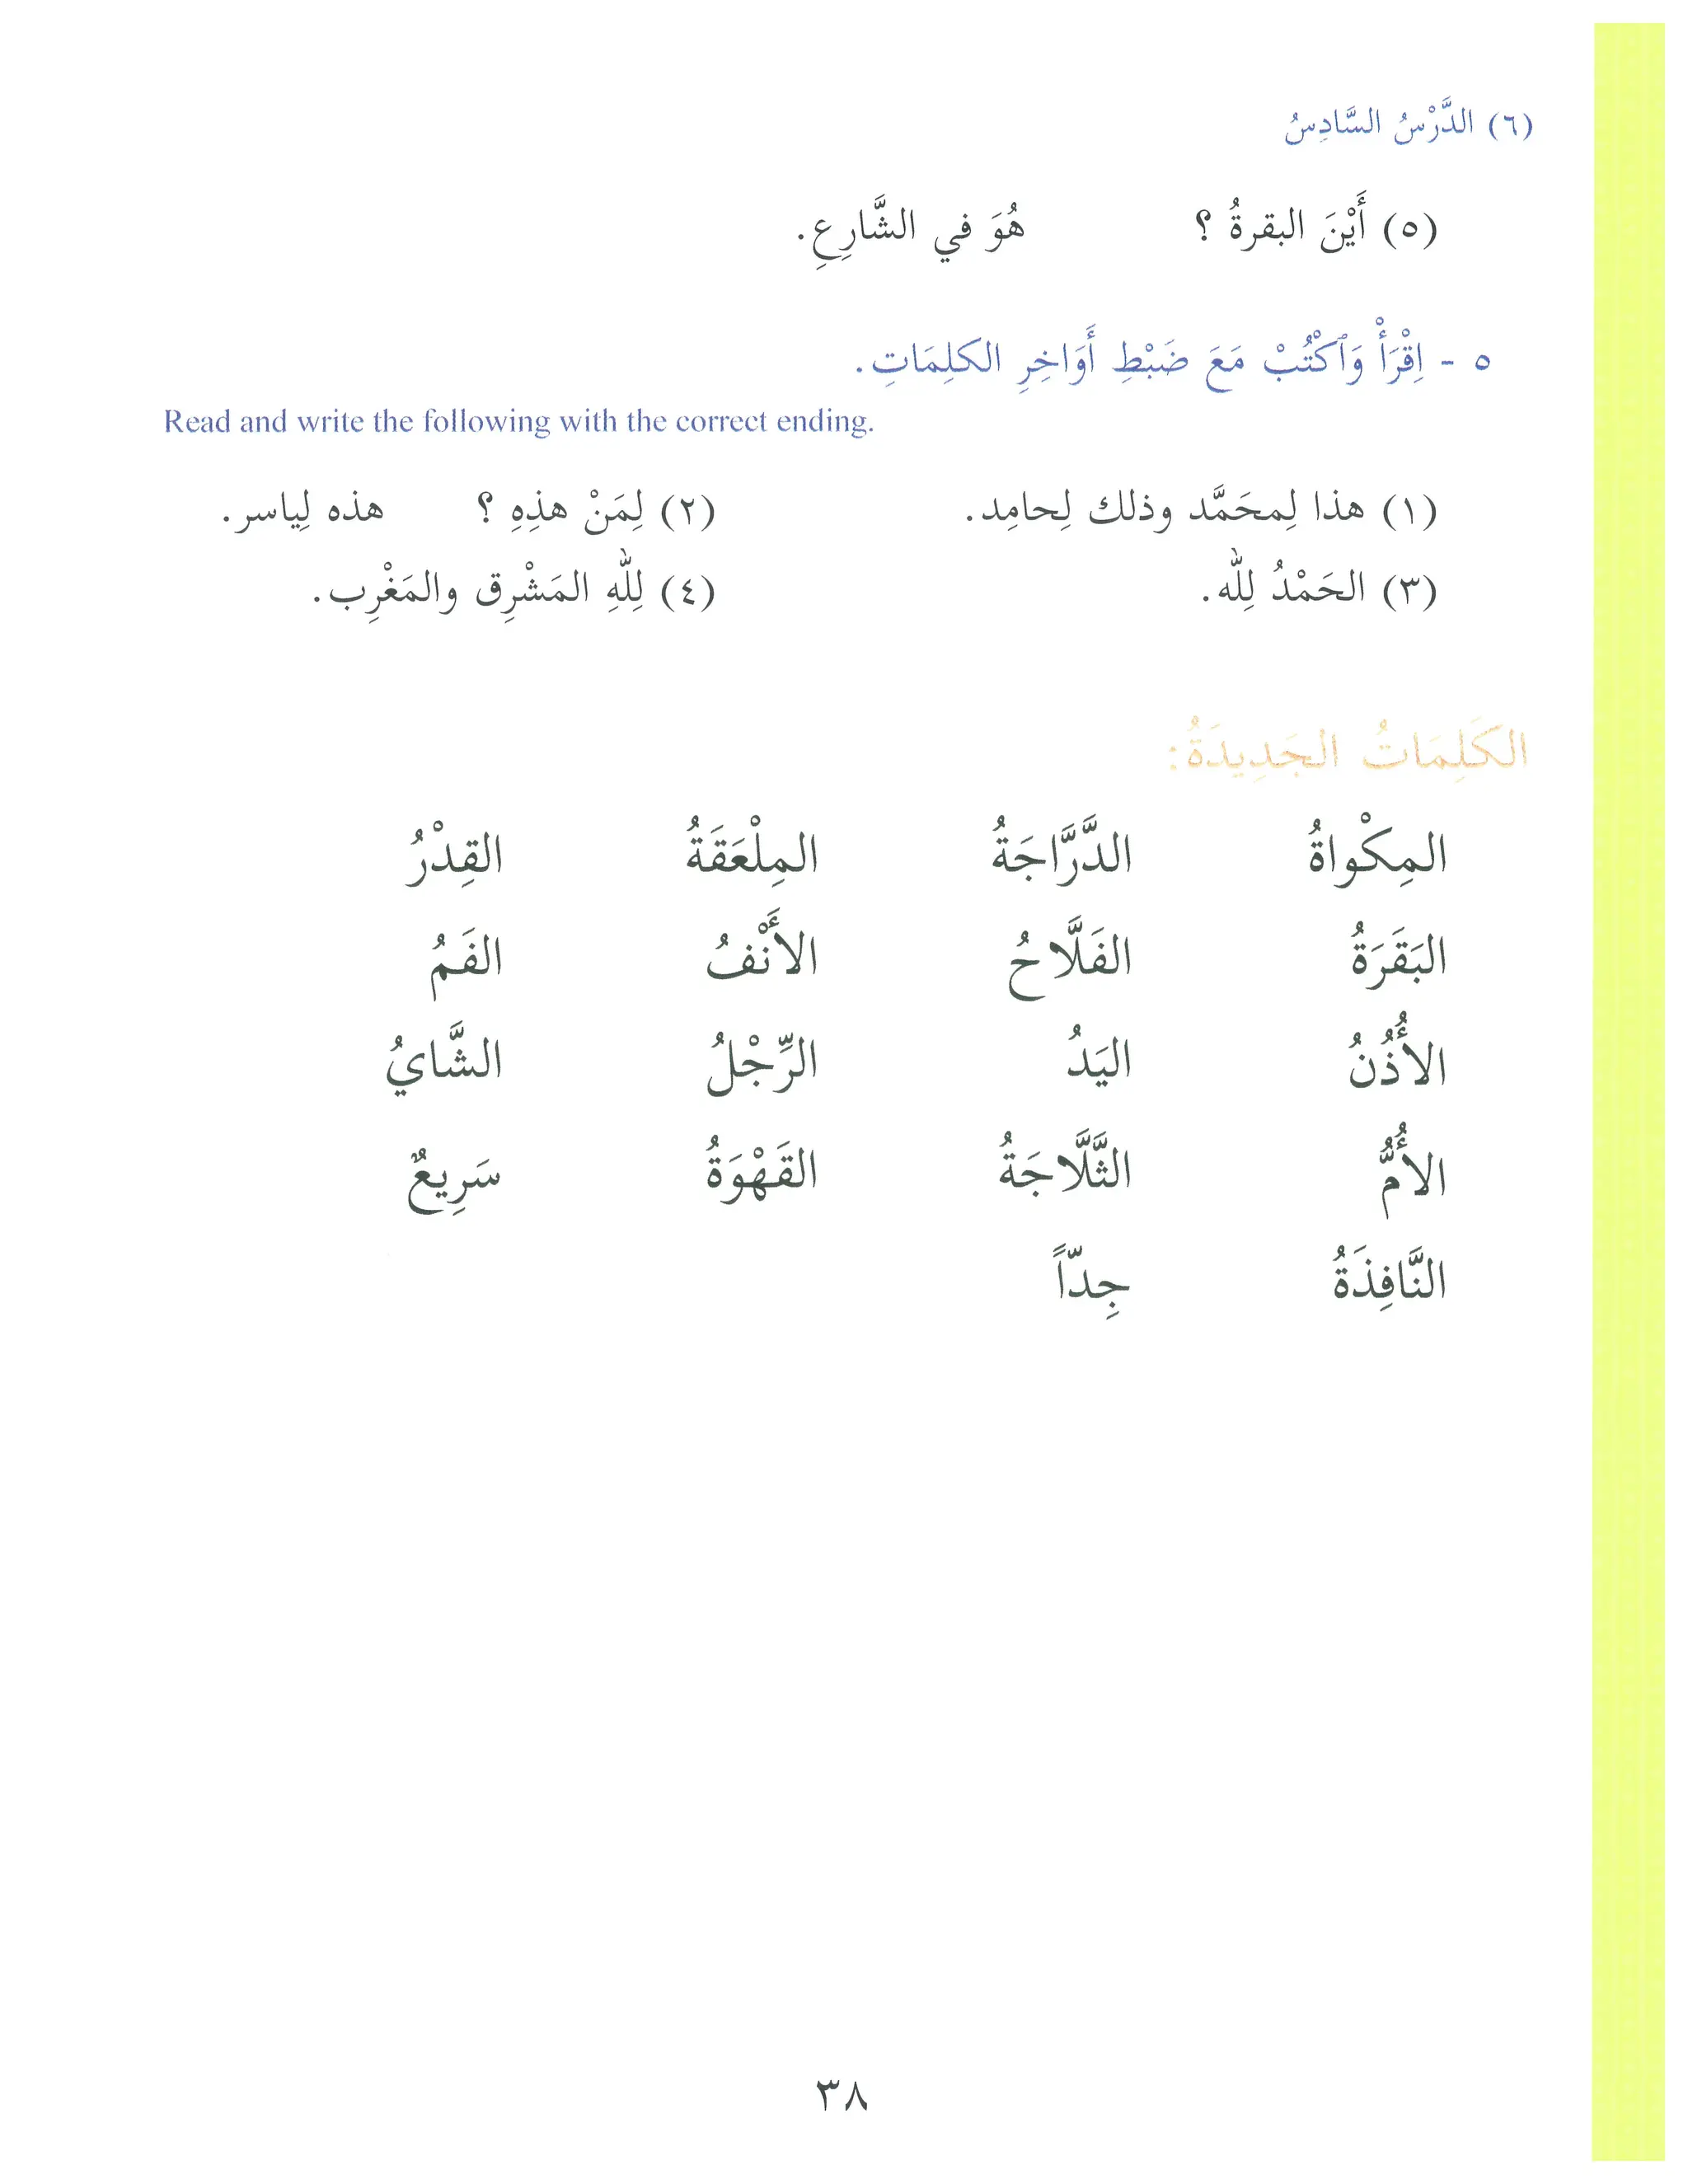 (٦) الدَّرْسُ السَّادِسُ
(٥) أَيْنَ البقرةُ ؟ هُوَ في الشَّارِعِ.
٥ - اِقْرَأْ وَٱكْتُبْ مَعَ ضَبْطِ أَوَاخِرِ الكلِمَاتِ.
Read and write the following with the correct ending.
(١) هذا لِمحَمَّد وذلك لِحامِد. (٢) لِمَنْ هذِهِ ؟ هذه لِياسر.
(٣) الحَمْدُ لِلّٰه. (٤) لِلّٰهِ المَشْرِق والمَغْرِب.
الكَلِمَاتُ الجَدِيدَةُ:
المِكْواةُ الدَّرَّاجَةُ المِلْعَقَةُ القِدْرُ
البَقَرَةُ الفَلَّاحُ الأَنْفُ الفَمُ
الأُذُنُ اليَدُ الرِّجْلُ الشَّايُ
الأُمُّ الثَّلَّاجَةُ القَهْوَةُ سَرِيعٌ
النَّافِذَةُ جِدّاً
٣٨